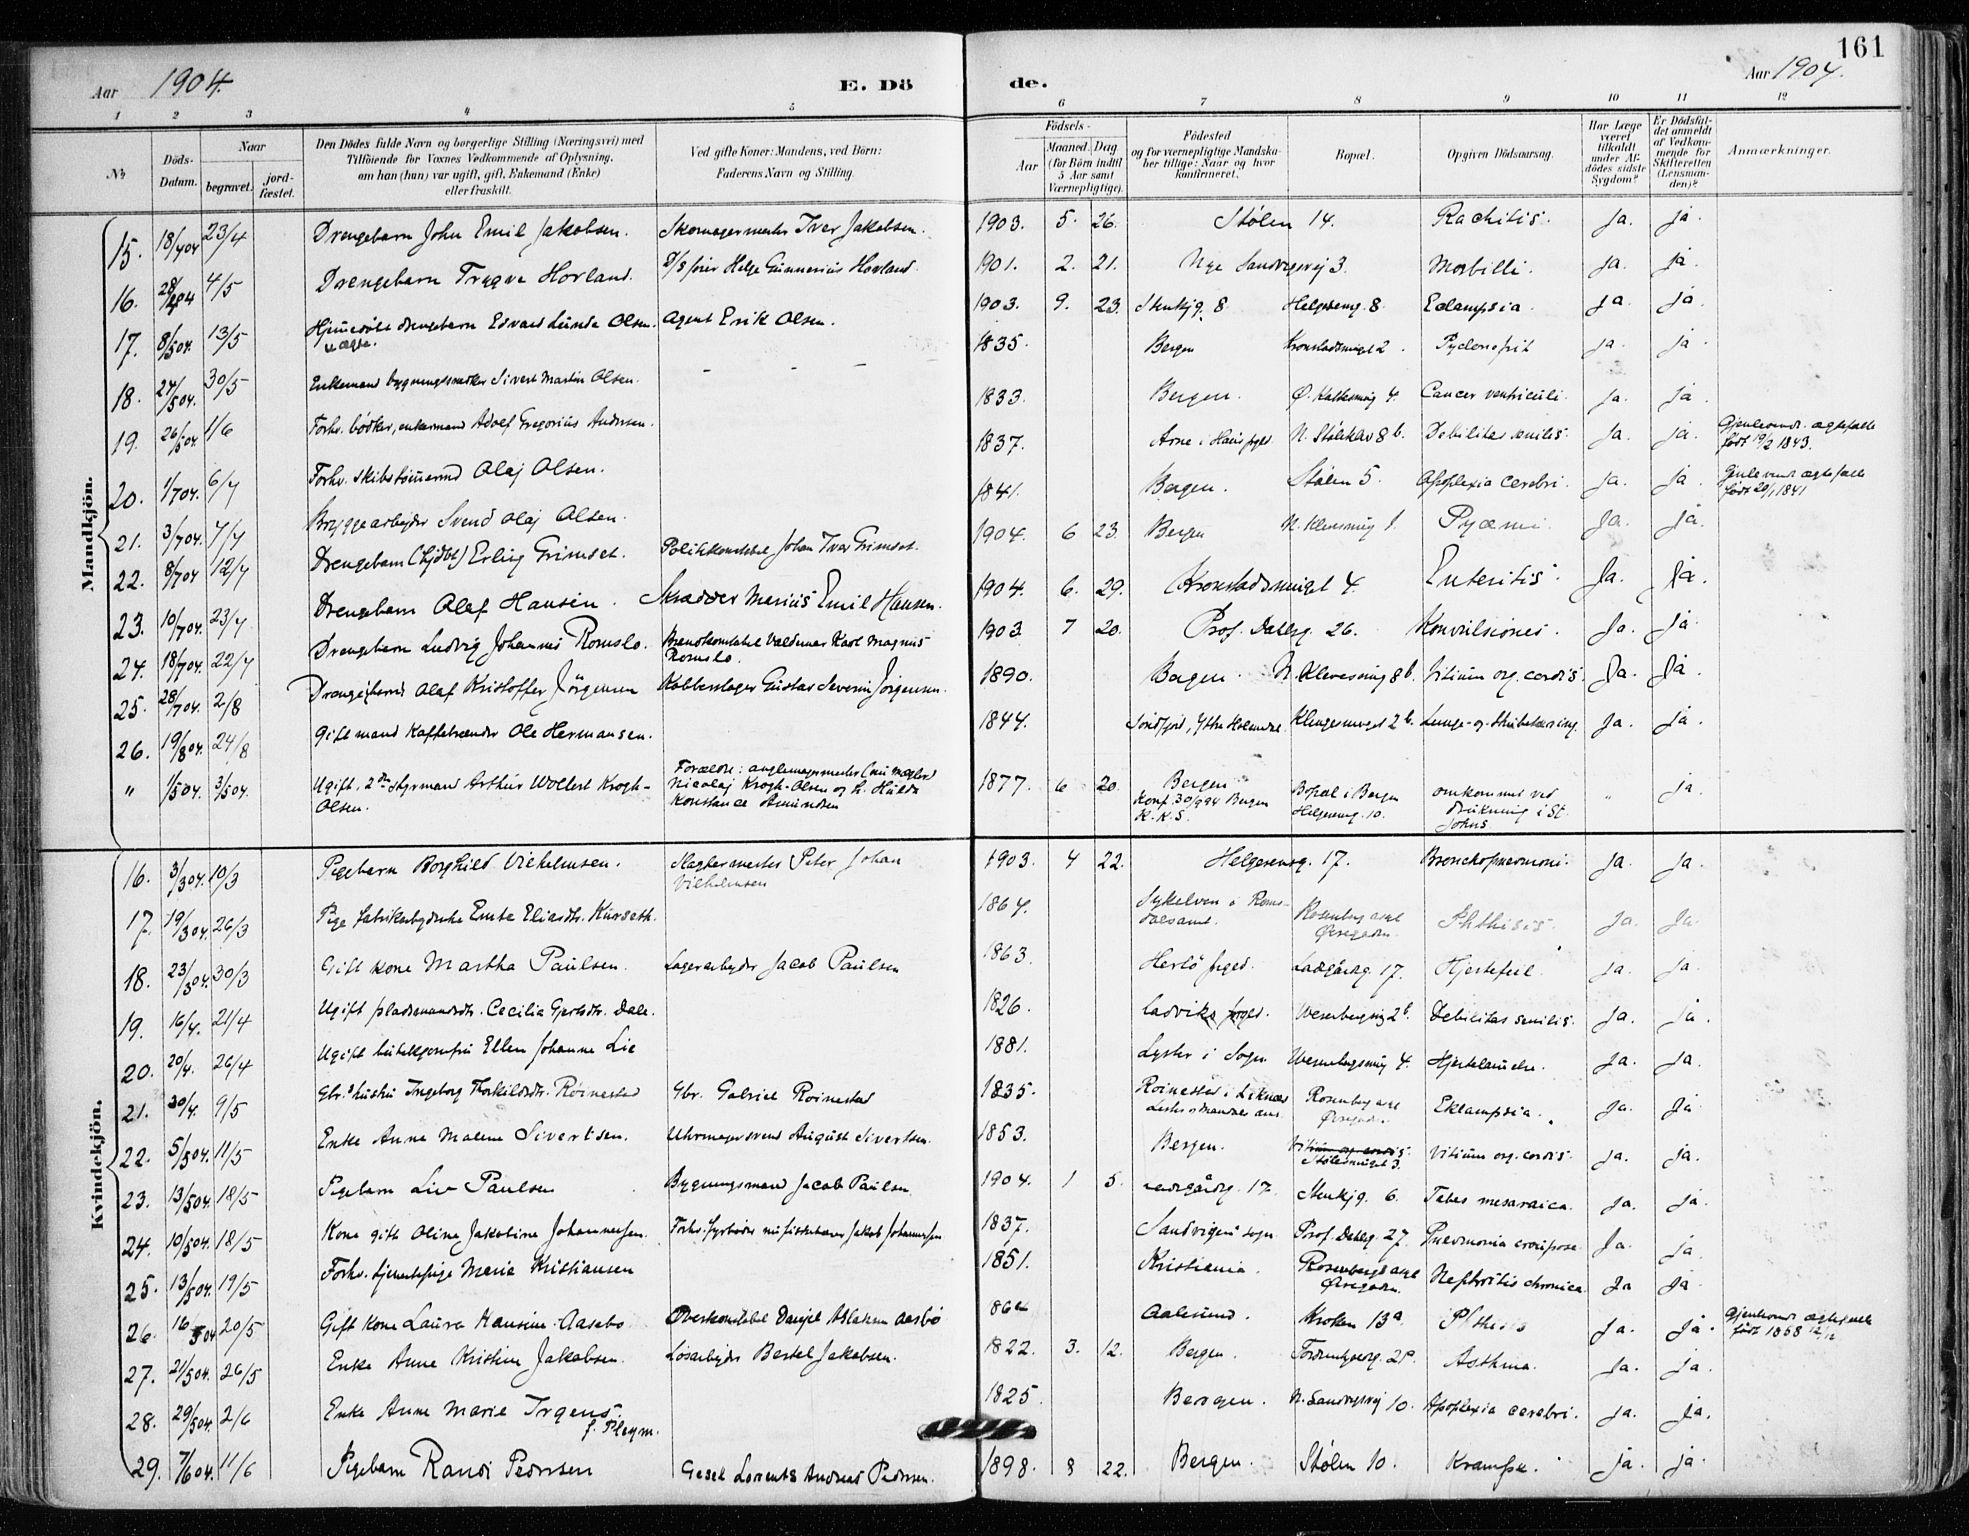 161
Aar 1904. E. Dö de. Aar 1904.
1 2 3 4 5 6 7 8 9 10 11 12
№ Döds-Datum. Naar begravet. jordfæstet. Den Dödes fulde Navn og borgerlige Stilling (Næringsvei) med Tilföiende for Voxnes Vedkommende af Oplysning, om han (hun) var ugift, gift, Enkemand (Enke) eller fraskilt. Ved gifte Koner: Mandens, ved Börn: Faderens Navn og Stilling. Födsels- Aar Maaned. Dag (for Börn indtil 5 Aar samt Værnepligtige). Födested og for værnepligtige Mandskaber tillige: Naar og hvor konfirmeret. Bopæl. Opgiven Dödsaarsag. Har Læge været tilkaldt under Afdödes sidste Sygdom? Er Dödsfaldet anmeldt af Vedkommende for Skifteretten (Lensmanden)? Anmærkninger.
Mandkjön.
15. 18/4 04 23/4 Drengebarn John Emil Jakobsen. Skomagermester Iver Jakobsen. 1903. 5. 26. Stølen 14. Rachitis. Ja. ja
16. 28/4 04 4/5 Drengebarn Trygve Hovland. Helge Gunnerius Hovland 1901. 2. 21. Nye Sandvigsvej 3. Morbilli. ja. ja.
17. 8/5 04. 13/5 drengebarn Edvard Lunde Olsen. Agent Erik Olsen. 1903. 9. 23. Stenkjg. 8 Helgesensg. 8. Eclampsia. ja. ja
18. 24/5 04. 30/5 Enkemand Sivert Martin Olsen. - - - 1835. Bergen Kronstadsmuget 2. ja. ja.
19. 26/5 04. 1/6 Forhv. bødker, enkemand Adolf Gregorius Andersen. 1833. Bergen. Ø. 4. Cancer ventriculi. ja. ja.
20. 1/7 04. 6/7 Forhv. skibstømmermd Olaj Olsen. 1837. Arne i N. 8b. Debilitas senilis. ja. ja. Gjenlevende ægtefælle født 19/2 1843.
21. 3/7 04. 7/7 Bryggearbejder Svend Olaj Olsen. 1841. Bergen. Stølen 5. Apoplexia cerebri. ja. ja. Gjenlevende ægtefælle født 20/1 1841
22. 8/7 04 12/7 Drengebarn (hjdbt) Erling Grimset. Politikonstabel Johan Ivar Grimset. 1904. 6 23. Bergen Pyæmi. Ja. ja.
23. 10/7 04. 23/7 Drengebarn Olaf Hansen. Skrædder Marius Emil Hansen. 1904. 6. 29. Kronstadsmuget 4. Enteritis. Ja. Ja.
24. 18/7 04. 22/7 Drengebarn Ludvig Johannes Romslo. Brandkonstabel Valdemar Karl Magnus Romslo. 1903 7 20. Prof. Dahlsg. 26. Konvulsiones. Ja. ja
25. 28/7 04. 2/8 Olaf Kristoffer Jörgensen Kobberslager Gustav Severin Jörgensen. 1890. Bergen. N. 8b. Vitium org. cordis. Ja. Ja.
26. 19/8 04. 24/8 Gift mand Kaffebrænder Ole Hermansen. 1844. 2b. Lunge- og Strubetæring. Ja. ja.
" 1/5 04. 3/5 04. Ugift, 2den Styrmand Arthur Wollert Krogh-Olsen. Forældre: Nicolaj Krogh-Olsen og h. Hulda Konstance Amundsen 1877. 6 20. Bergen Konf. 30/9 94 Bergen K.K.S. Bopæl i Bergen Helgesensg. 10. omkommet ved drukning i St. Johns " ja.
Kvindekjön.
16. 3/3 04. 10/3 Pigebarn Borghild Vilhelmsen. Slagtermester Peter Johan Vilhelmsen 1903. 4 22. Helgesensg. 17. Bronchopneumoni. ja. ja.
17. 19/3 04. 26/3 Pige fabrikarbejderske Ente Eliasdtr. Kurseth. 1864. Sykelven i Romsdalsamt. Phthisis. Ja. Ja.
18. 23/3 04. 30/3 Gift kone Martha Paulsen. Lagerarbejder Jacob Paulsen 1863. Herlö prgd. Ladegårdsg. 17. Hjertefeil. ja. ja.
19. 16/4. 21/4 Ugift pladsmandsdtr. Cecilia Gjertsdtr. Dale. 1826. Ladviks prgd. 2b. Debilitas senilis. ja. ja.
20. 20/4. 26/4 Ugift Ellen Johanne Lie 1881. Lyster i Sogn 4. ja. ja.
21. 30/4. 9/5 Gbr.'s hustru Ingeborg Thorkildsdtr. Röinestad Gbr. Gabriel Roinestad 1835. Roinestad i Eklampsia. ja. Ja
22. 5/5 04. 11/5 Enke Anne Malene Sivertsen. Uhrmagersvend August Sivertsen. 1853. Bergen. Vitium org. cordis. Stølesmuget 3. Vitium org. cordis. ja. ja.
23. 13/5 04. 18/5 Pigebarn Liv Paulsen Bygningsmand Jacob Paulsen. 1904. 1 5. Ladegårdsg. 17. Stenkjg. 6. Tabes mesaraica. ja. ja.
24. 10/5 04. 18/5 Kone gift Oline Jakobine Johannessen. Jakob Johannessen 1837. Sandvigens sogn Prof. Dahlsg. 27. Pneumonia crouposa. Ja. ja.
25. 13/5 04. 19/5 Forhv. tjenestepige Marie Kristiansen 1851. Kristiania. Nephritis chronica. Ja ja.
26. 16/5 04 20/5 Gift kone Laura Hansine Aasebo Overkonstabel Danjel Aslaksen Aasbö 1864 Aalesund. Kroken 13a. Phthisis Ja. Ja. Gjenlevende ægtefælle født 1858 12/12
27. 21/5 04. 26/5 Enke Anne Kristine Jakobsen. Løsarbejder Bertel Jakobsen. 1822. 3. 12. Bergen. Asthma. ja. ja.
28. 29/5 04. 2/6 Enke Anne Marie Irgens. f. Pleym. 1825. Bergen. N. Sandvigsvej 10. Apoplexia cerebri. ja. ja.
29. 7/6 04. 11/6 Pigebarn Randi Pedersen Gesel Lorents Andreas Pedersen. 1898. 8 22. Bergen. Stølen 10. Krampe. ja. ja.